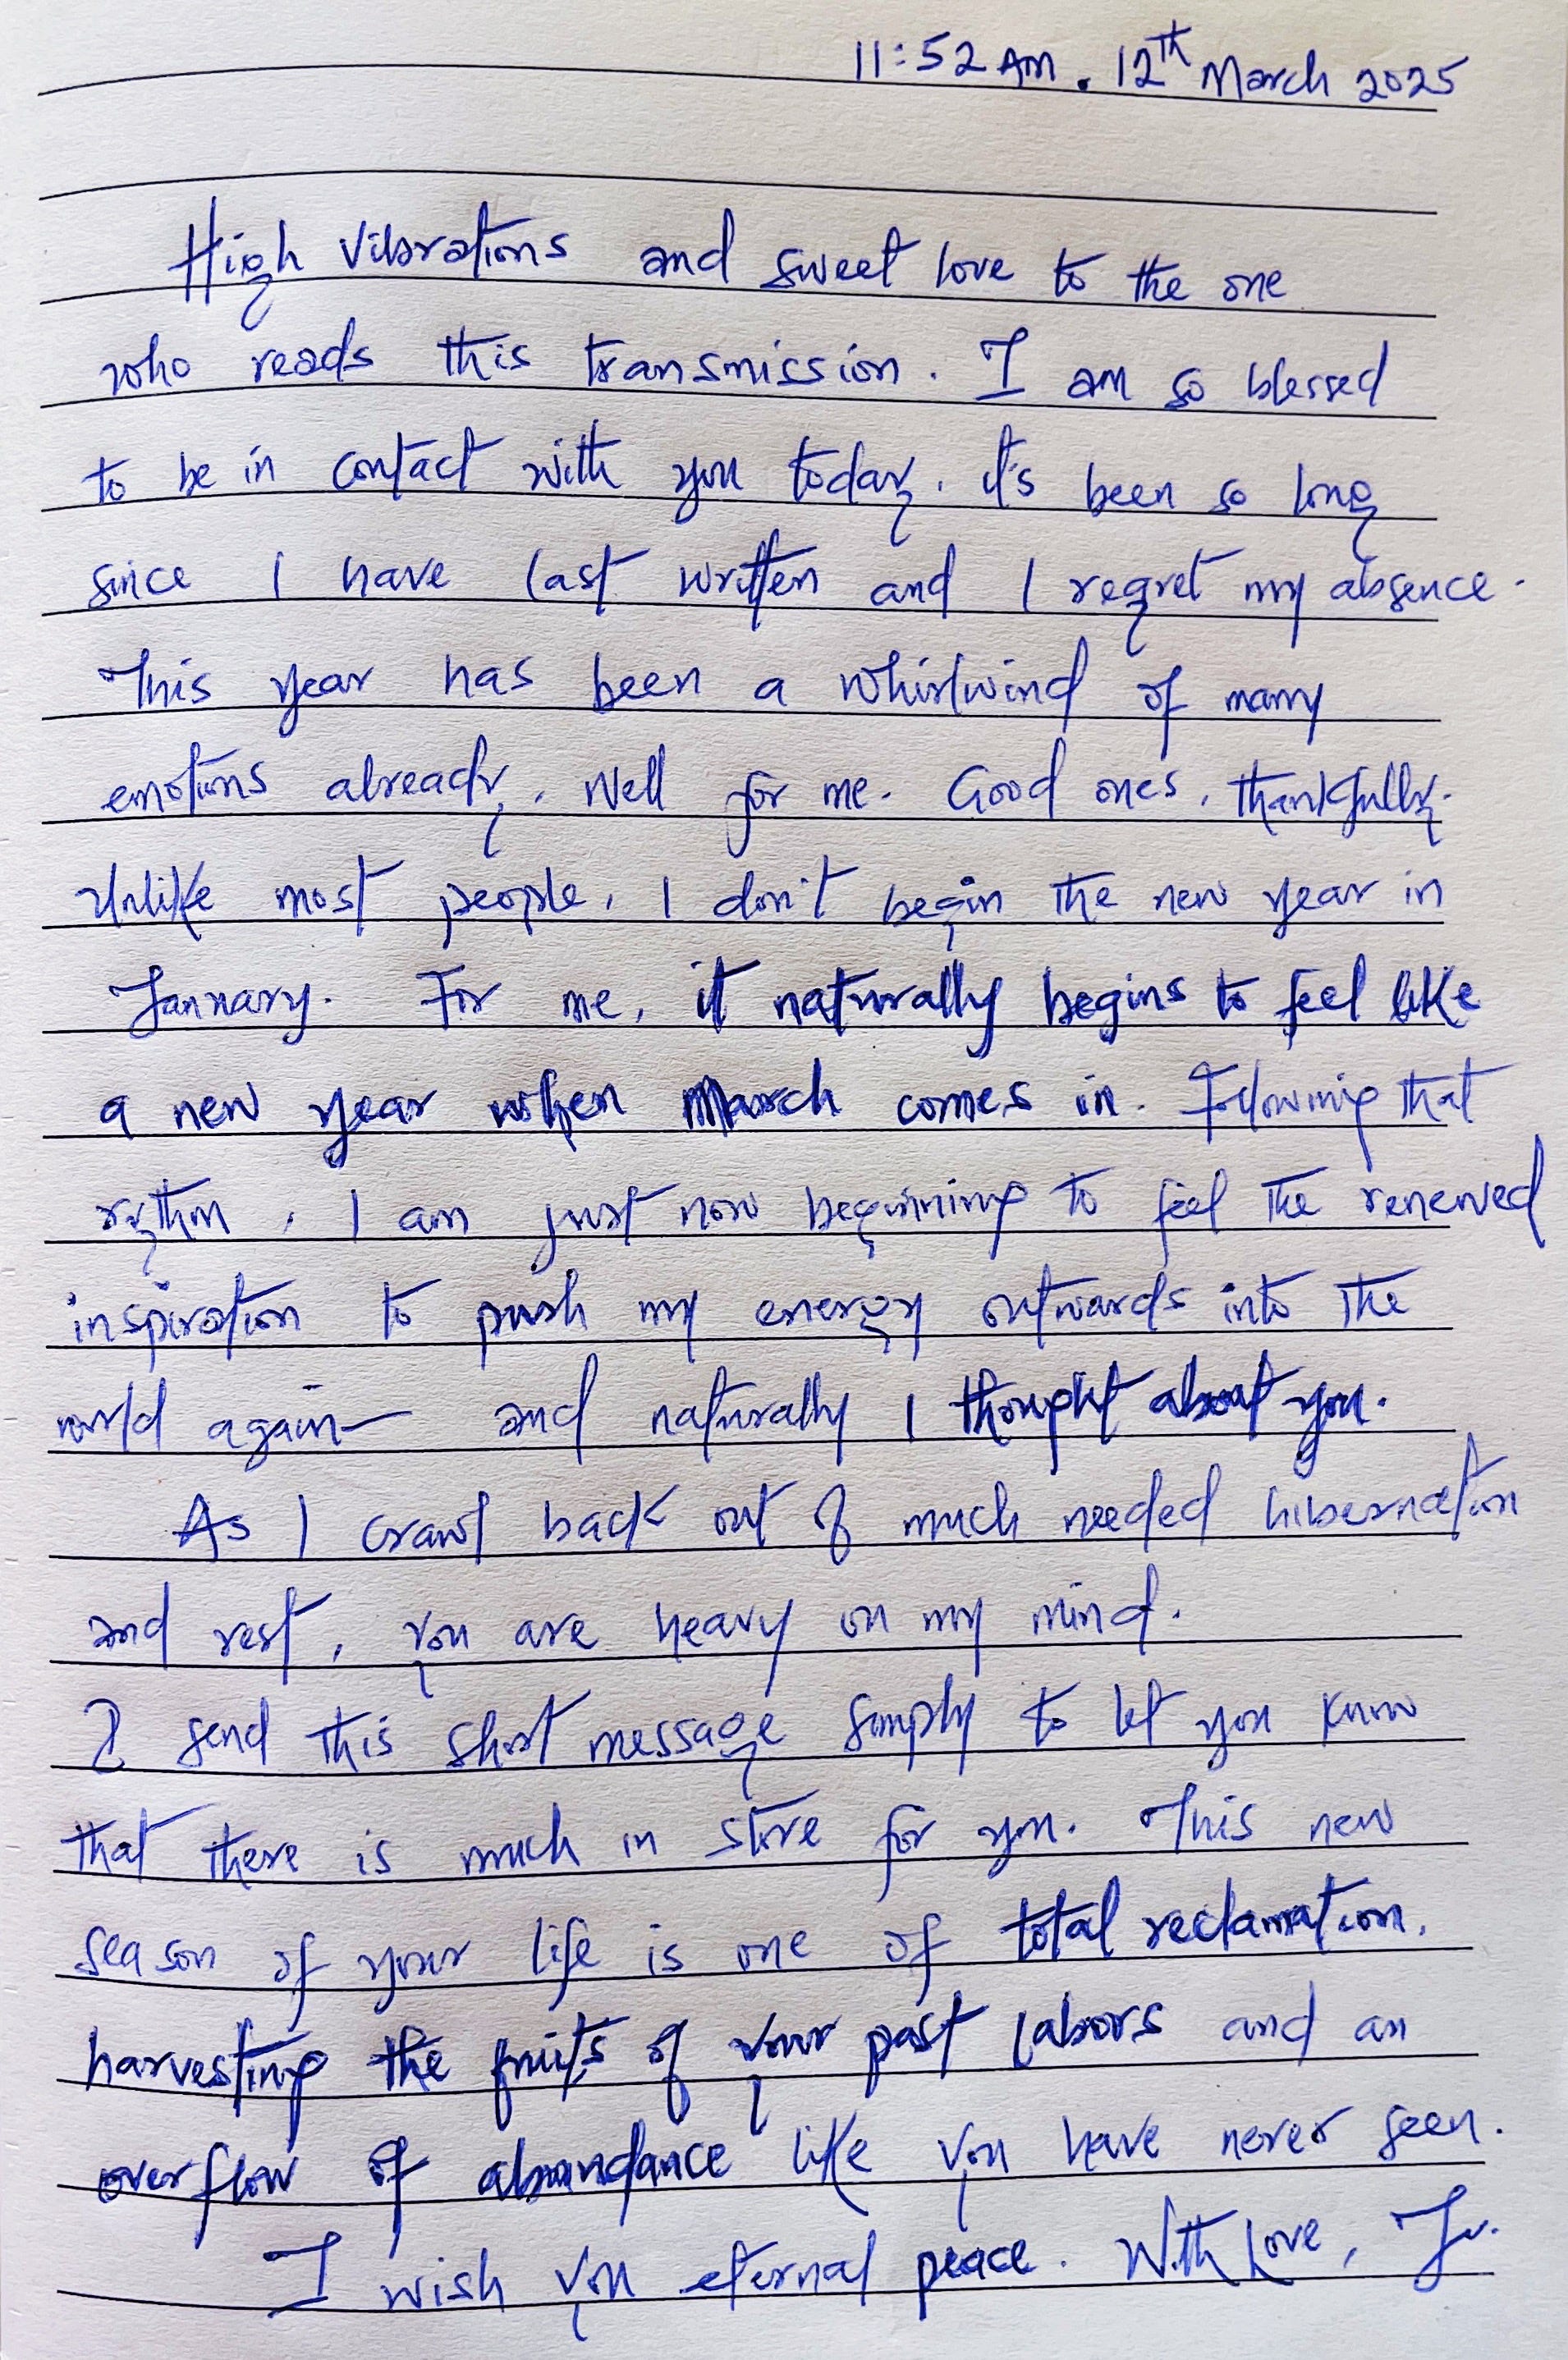 11:52 AM. 12th March 2025
High Vibrations and sweet love to the one
who reads this transmission. I am so blessed
to be in contact with you today. it's been so long
since I have last written and I regret my absence.
This year has been a whirlwind of many
emotions already. Well for me. Good ones, thankfully.
Unlike most people, I don't begin the new year in
January. For me, it naturally begins to feel like
a new year when March comes in. Following that
rythm, I am just now beginning to feel the renewed
inspiration to push my energy outwards into the
world again— and naturally I thought about you.
As I crawl back out of much needed hibernation
and rest, you are heavy on my mind.
I send this short message simply to let you know
that there is much in store for you. This new
season of your life is one of total reclamation,
harvesting the fruits of your past labors and an
overflow of abundance like you have never seen.
I wish you eternal peace. With love,